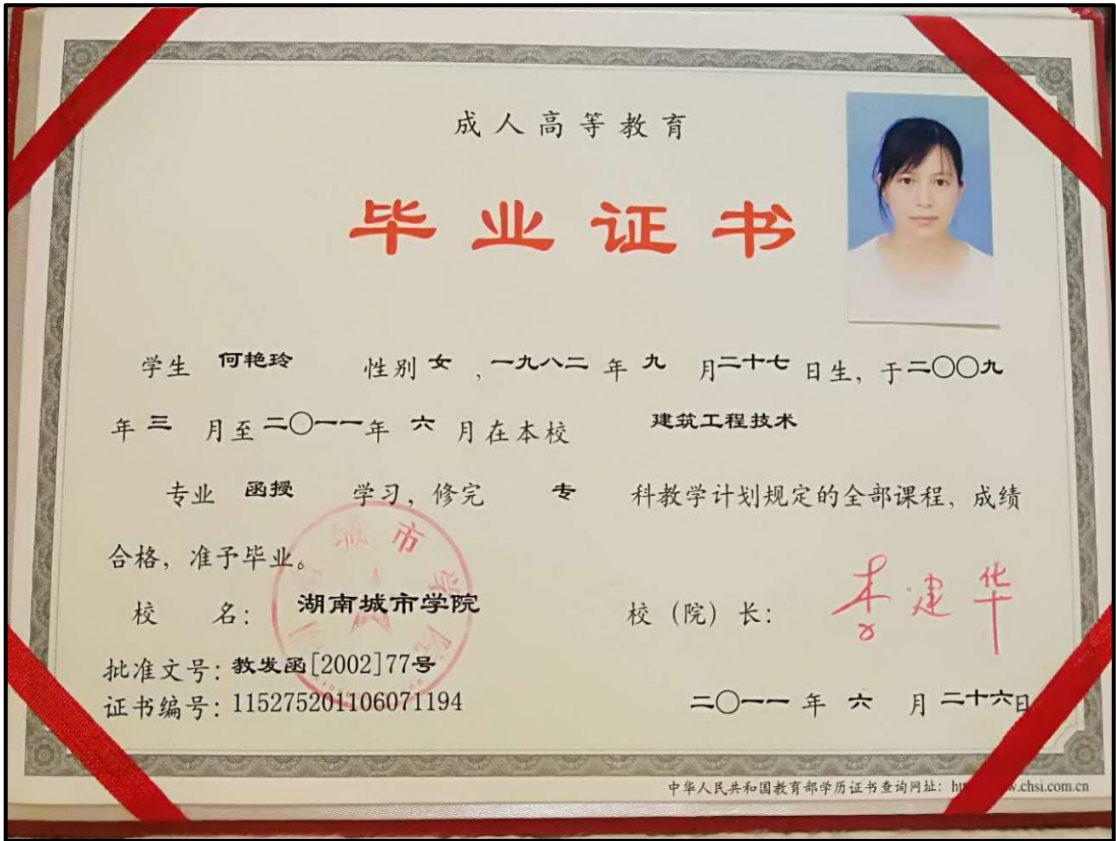 成人高等教育
毕业证书
学生 何艳玲 性别 女 , 一九八二 年 九 月二十七 日生, 于二〇〇九
年 三 月至 二〇一一年 六 月在本校 建筑工程技术
专业 函授 学习, 修完 专 科教学计划规定的全部课程, 成绩
合格, 准予毕业。
校 名: 湖南城市学院 校 (院) 长: 李建华
批准文号: 教发函[2002]77号
证书编号: 115275201106071194 二〇一一 年 六 月 二十六日
中华人民共和国教育部学历证书查询网址: .chsi.com.cn